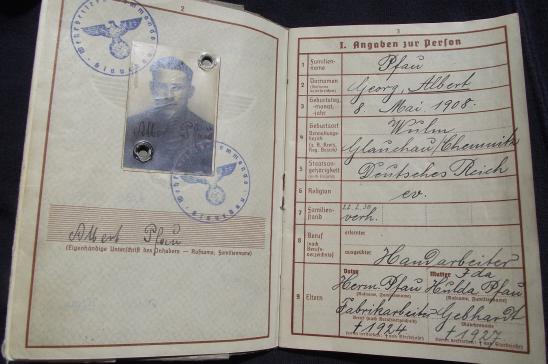 2
Albert Pfau
Albert Pfau
(Eigenhändige Unterschrift des Inhabers — Rufname, Familienname)
3
I. Angaben zur Person
1 Familien-
name
Pfau
2 Vornamen
(Rufname
unterstreichen)
Georg, Albert
3 Geburtstag,
-monat,
-jahr
8. Mai 1908.
4 Geburtsort
Verwaltungs-
bezirk
(z. B. Kreis,
Reg.-Bezirk)
Wulm
Glauchau/Chemnitz
5 Staatsan-
gehörigkeit
Deutsches Reich
6 Religion
ev.
7 Familien-
stand
verh.
8 Beruf
(nach
Berufsver-
zeichnis)
erlernter
ausgeübter
Handarbeiter
9 Eltern
Vater
Mutter Ida
Herm. Pfau Hulda Pfau
(Rufname, Familienname)
(Rufname, Familienname)
Fabrikarbeiter Gebhardt
(Beruf (nach Berufsverzeichnis))
(Mädchenname)
† 1924
† 1927